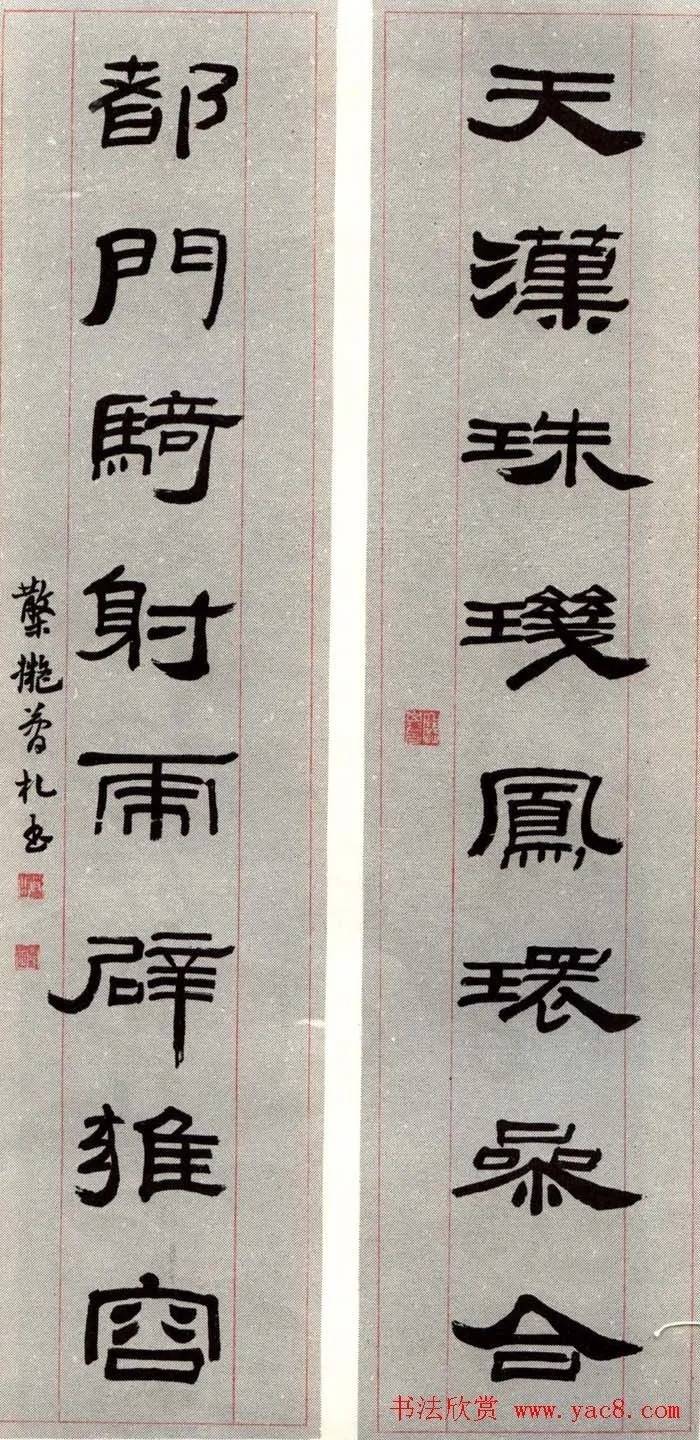 天漢珠璣鳳環參合
都門騎射雨辟雍容
札書
书法欣赏 www.yac8.com